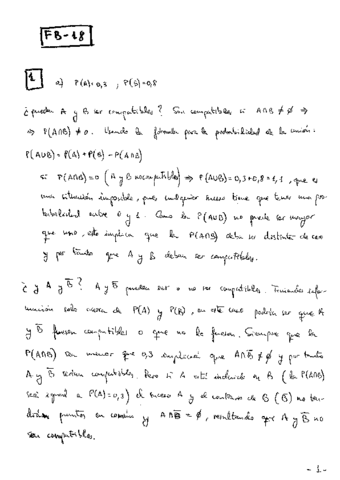 FB-18
1 a) P(A)=0,3 , P(B)=0,8
¿pueden A y B ser compatibles? Son compatibles si A∩B ≠ ∅ ⇒
⇒ P(A∩B) ≠ 0. Usando la fórmula para la probabilidad de la unión:
P(A∪B) = P(A) + P(B) - P(A∩B)
si P(A∩B)=0 (A y B no compatibles) ⇒ P(A∪B)=0,3+0,8=1,1, que es
una situación imposible, pues cualquier suceso tiene que tener una pro-
babilidad entre 0 y 1. Como la P(A∪B) no puede ser mayor
que uno, esto implica que la P(A∩B) debe ser distinta de cero
y por tanto que A y B deban ser compatibles.
¿y A y B̅? A y B̅ pueden ser o no ser compatibles. Teniendo infor-
mación solo acerca de P(A) y P(B), en este caso podría ser que A
y B̅ fueran compatibles o que no lo fueran. Siempre que la
P(A∩B) sea menor que 0,3 implicará que A∩B̅ ≠ ∅ y por tanto
A y B̅ serían compatibles. Pero si A está incluido en B (la P(A∩B)
será igual a P(A)=0,3) el suceso A y el contrario de B (B̅) no ten-
drían puntos en común y A∩B̅ = ∅, resultando que A y B̅ no
son compatibles.
-1-